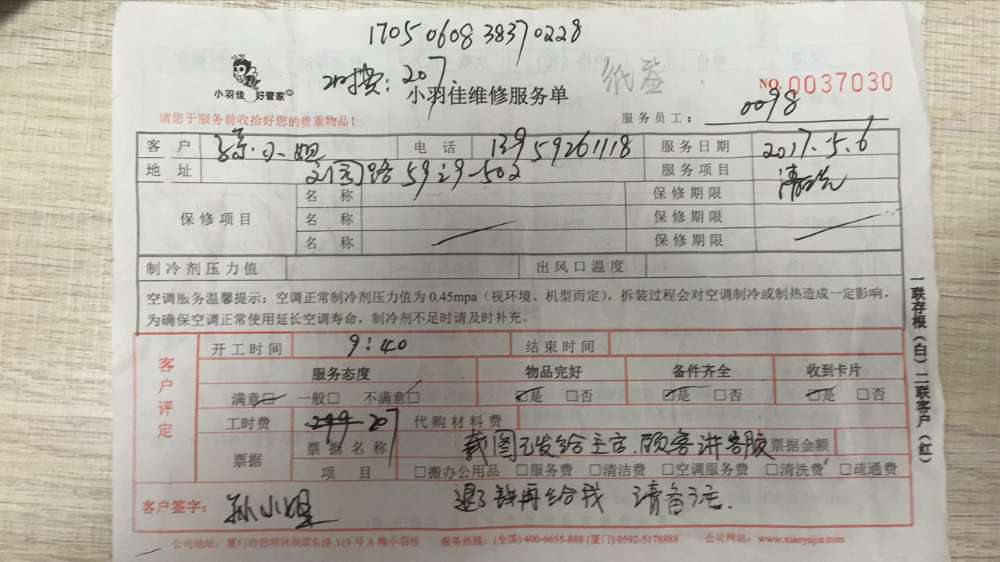 1705060838370228
207
NO.0037030
小羽佳 好管家
小羽佳维修服务单
请您于服务前收拾好您的贵重物品！
服务员工： 0098
客户 孙小姐 电话 13959261118 服务日期 2017.5.6
地址 路59之9-502 服务项目 清洗
保修项目 名称 保修期限
名称 保修期限
名称 保修期限
制冷剂压力值 出风口温度
空调服务温馨提示：空调正常制冷剂压力值为0.45mpa（视环境、机型而定），拆装过程会对空调制冷或制热造成一定影响，
为确保空调正常使用延长空调寿命，制冷剂不足时请及时补充。
客户评定
开工时间 9:40 结束时间
服务态度 物品完好 备件齐全 收到卡片
满意□ 一般□ 不满意□ □是 □否 □是 □否 □是 □否
工时费 299 207 代购材料费
票据 票据名称 截图已发给主官.顾客讲客服 票据金额
项目 □搬办公用品 □服务费 □清洁费 □空调服务费 □清洗费 □疏通费
客户签字： 孙小姐 退了钱再给我 请备注.
公司地址：厦门市思明区湖滨东路319号A幢小羽佳 服务热线：(全国) 400-6655-888 (厦门) 0592-5178888 公司网站：www.xiaoyujia.com
一联存根（白）二联客户（红）